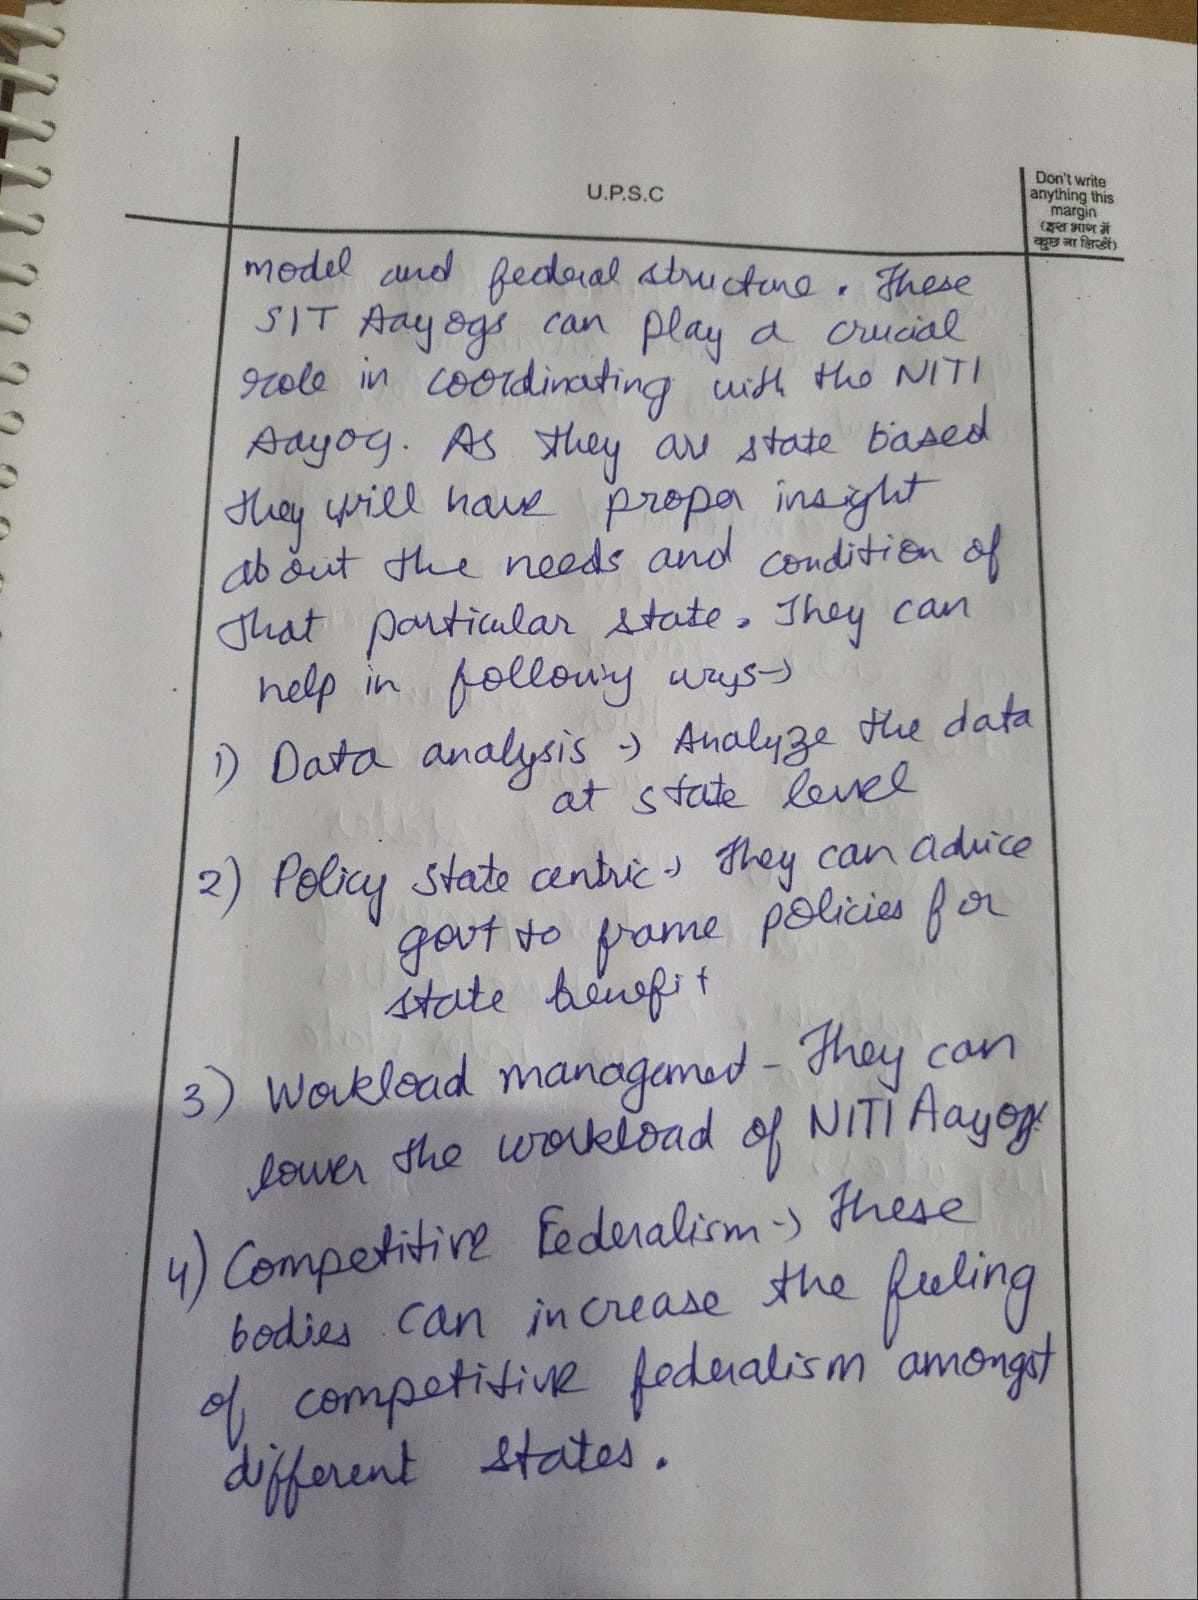 U.P.S.C
Don't write
anything this
margin
(इस भाग में
कुछ ना लिखें)
model and federal structure. These
SIT Aayogs can play a crucial
role in coordinating with the NITI
Aayog. As they are state based
they will have proper insight
about the needs and condition of
that particular state. They can
help in following ways →
1) Data analysis → Analyze the data
at state level
2) Policy state centric → They can advice
govt to frame policies for
state benefit
3) Workload management - They can
lower the workload of NITI Aayog.
4) Competitive Federalism → These
bodies can increase the feeling
of competitive federalism amongst
different states.